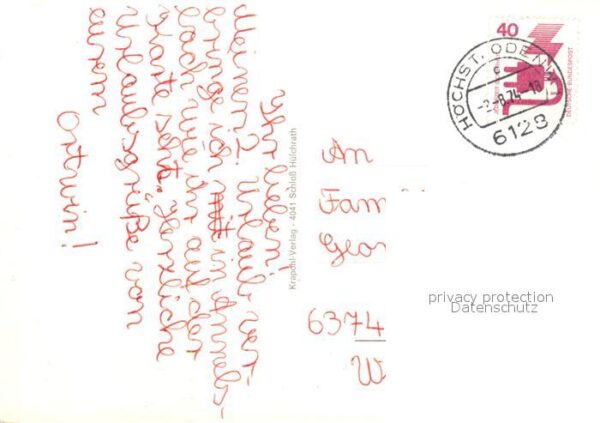 Ihr lieben!
Meinen 2. Urlaub ver-
bringe ich in Annels-
bach wie ihr auf der
Karte seht. Herzliche
Urlaubsgrüße von
eurem
Ortwin!
Krapohl-Verlag - 4041 Schloß Hülchrath
40
DEUTSCHE BUNDESPOST
HÖCHST, ODENW
c
-2.-8.74-18
6128
An
Fam
Geor
6374
W
privacy protection
Datenschutz